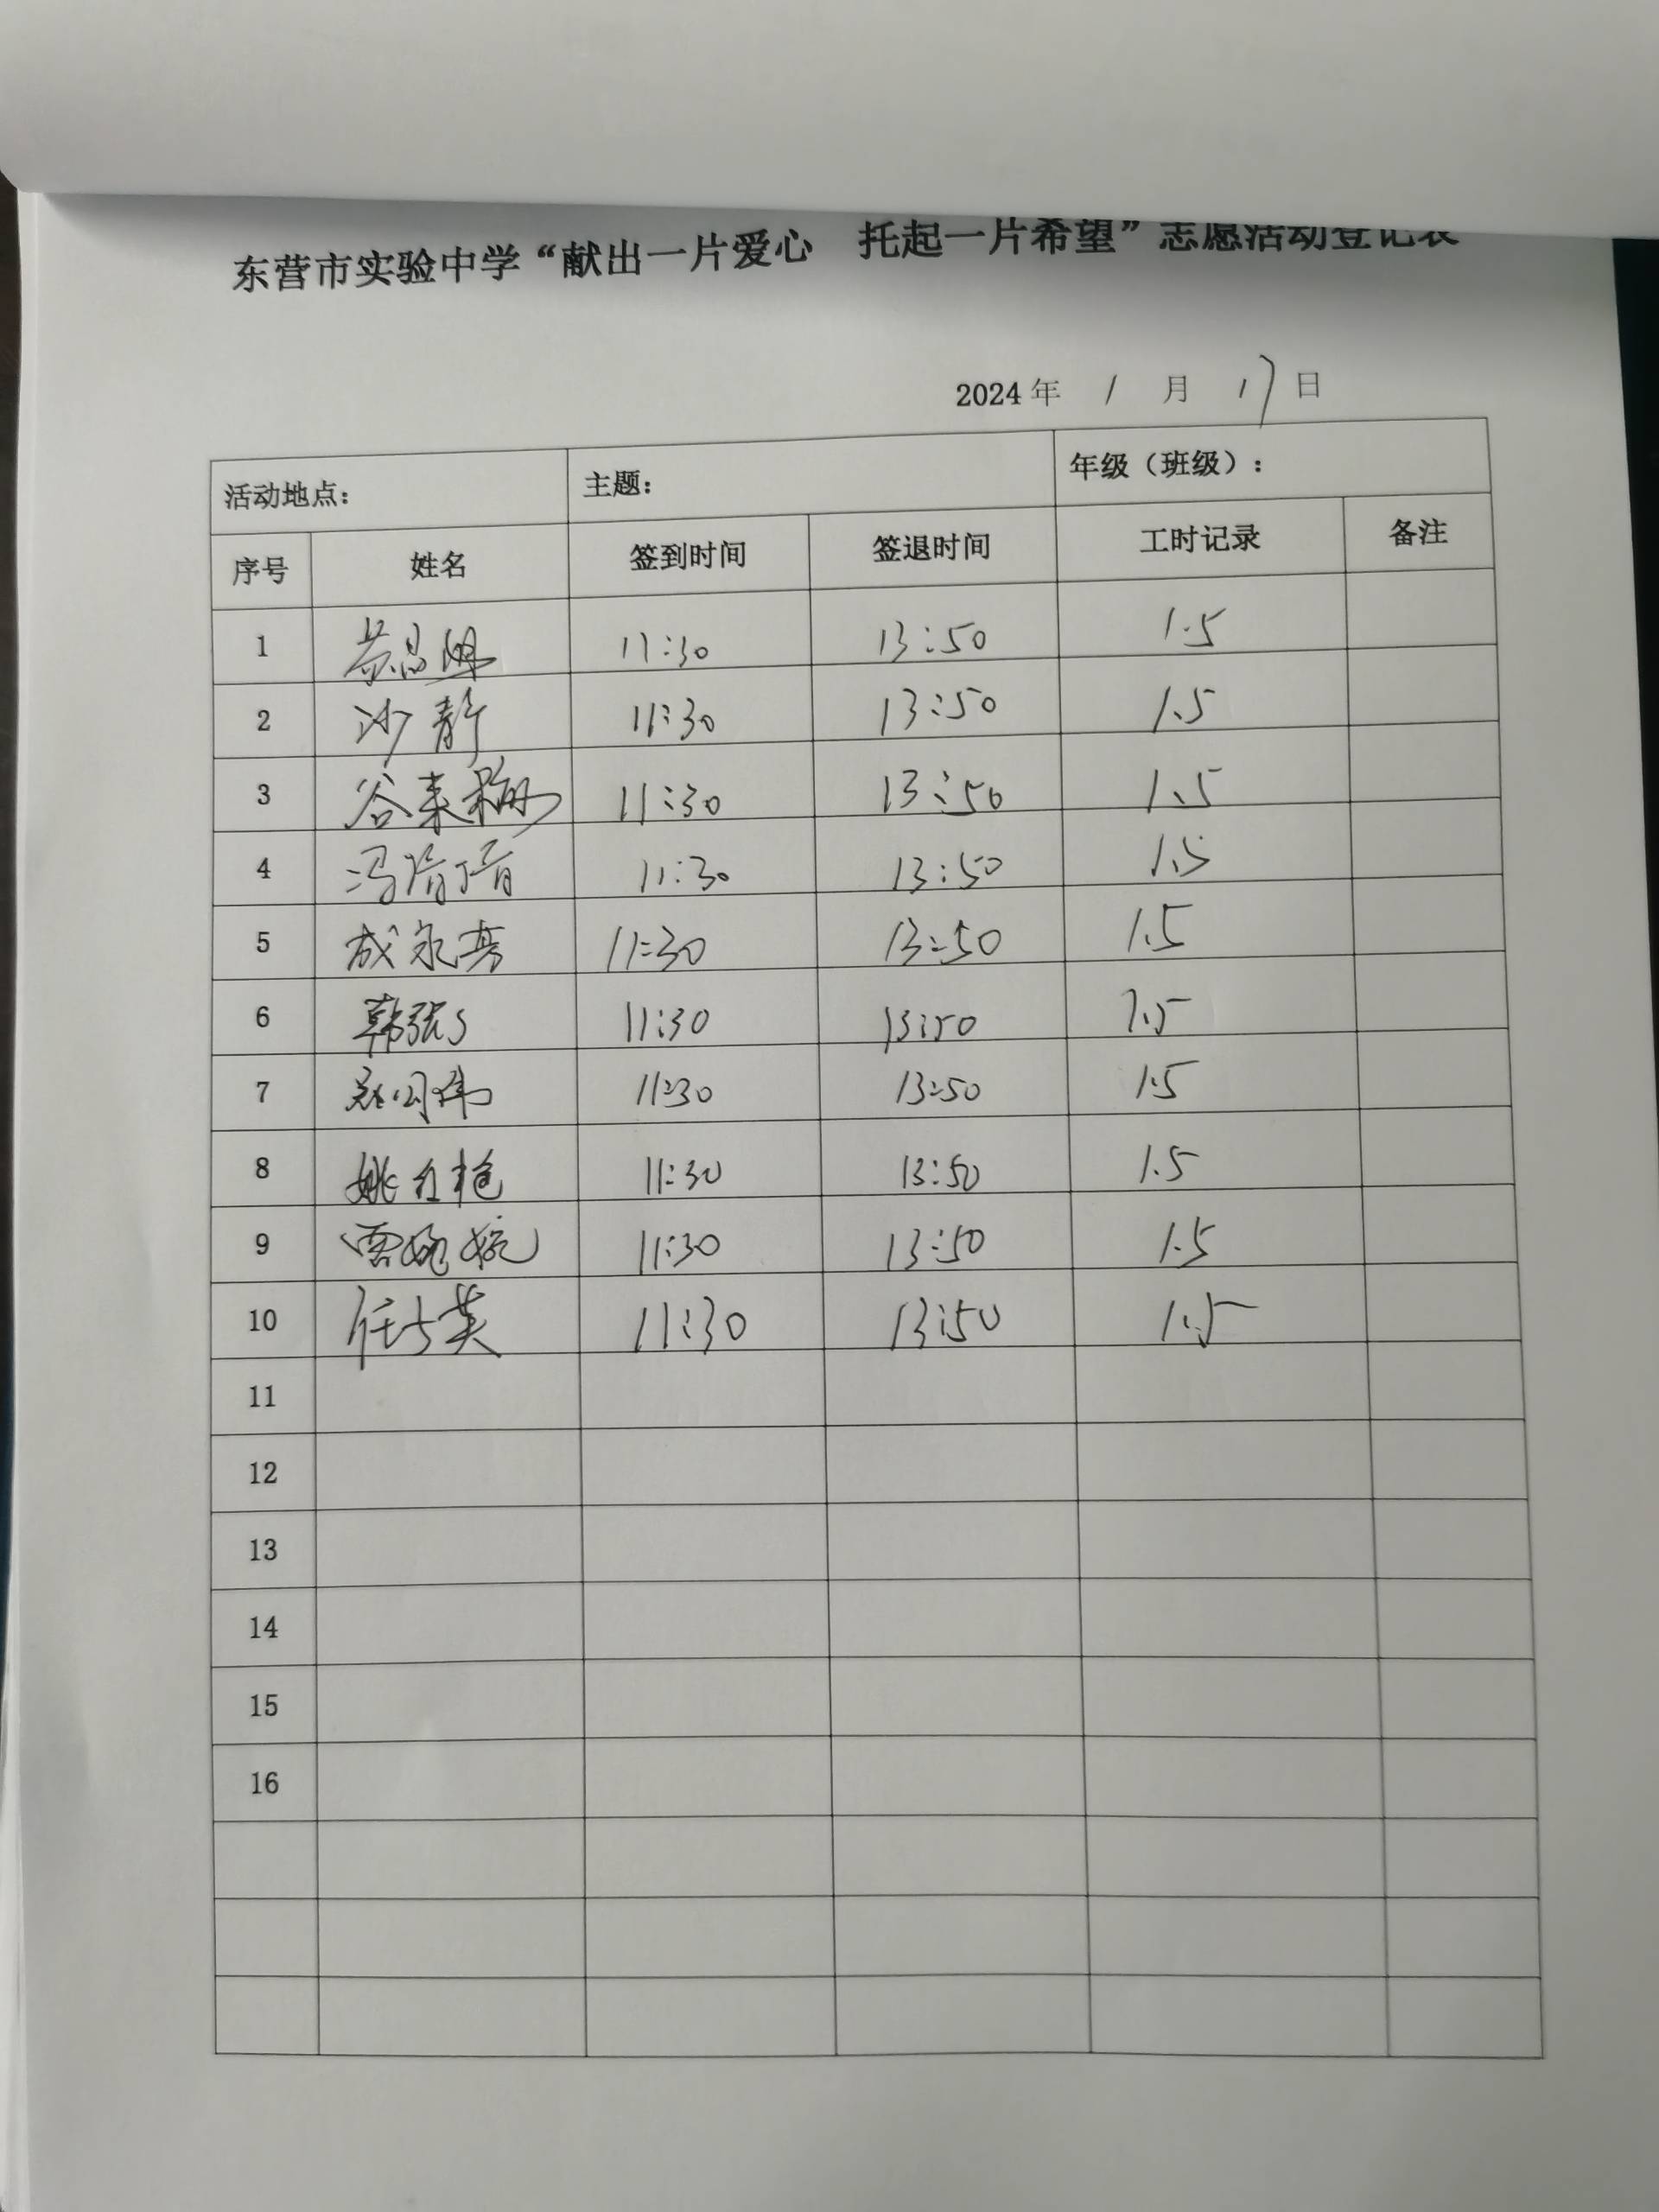 东营市实验中学“献出一片爱心 托起一片希望”志愿活动登记表
2024年 1 月 17 日
活动地点： 主题： 年级（班级）：
序号 姓名 签到时间 签退时间 工时记录 备注
1 11:30 13:50 1.5
2 沙静 11:30 13:50 1.5
3 谷来梅 11:30 13:50 1.5
4 冯倩倩 11:30 13:50 1.5
5 成永芳 11:30 13:50 1.5
6 韩 11:30 13:50 1.5
7 11:30 13:50 1.5
8 姚红艳 11:30 13:50 1.5
9 11:30 13:50 1.5
10 任 英 11:30 13:50 1.5
11
12
13
14
15
16